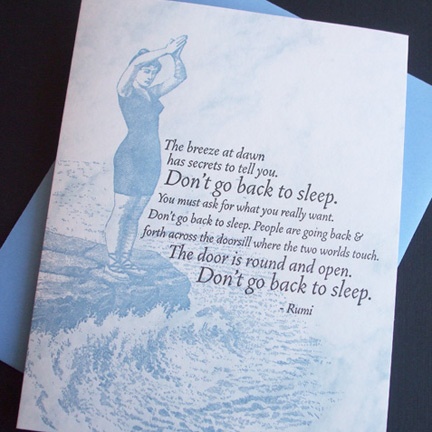 The breeze at dawn
has secrets to tell you.
Don't go back to sleep.
You must ask for what you really want.
Don't go back to sleep. People are going back &
forth across the doorsill where the two worlds touch.
The door is round and open.
Don't go back to sleep.
- Rumi